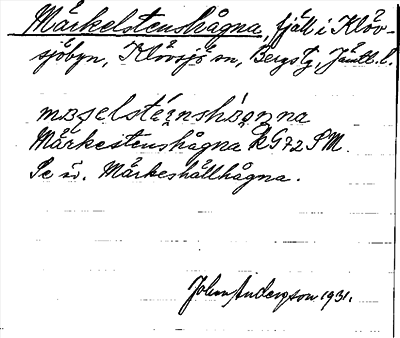 Märkelstenshågna, fjäll i Klöv-
sjöbyn, Klövsjö sn, Bergs tg, Jämtl. l.
Märkestenshågna RG72 SM.
Se äv. Märkeshållhågna.
John Anderson 1931.